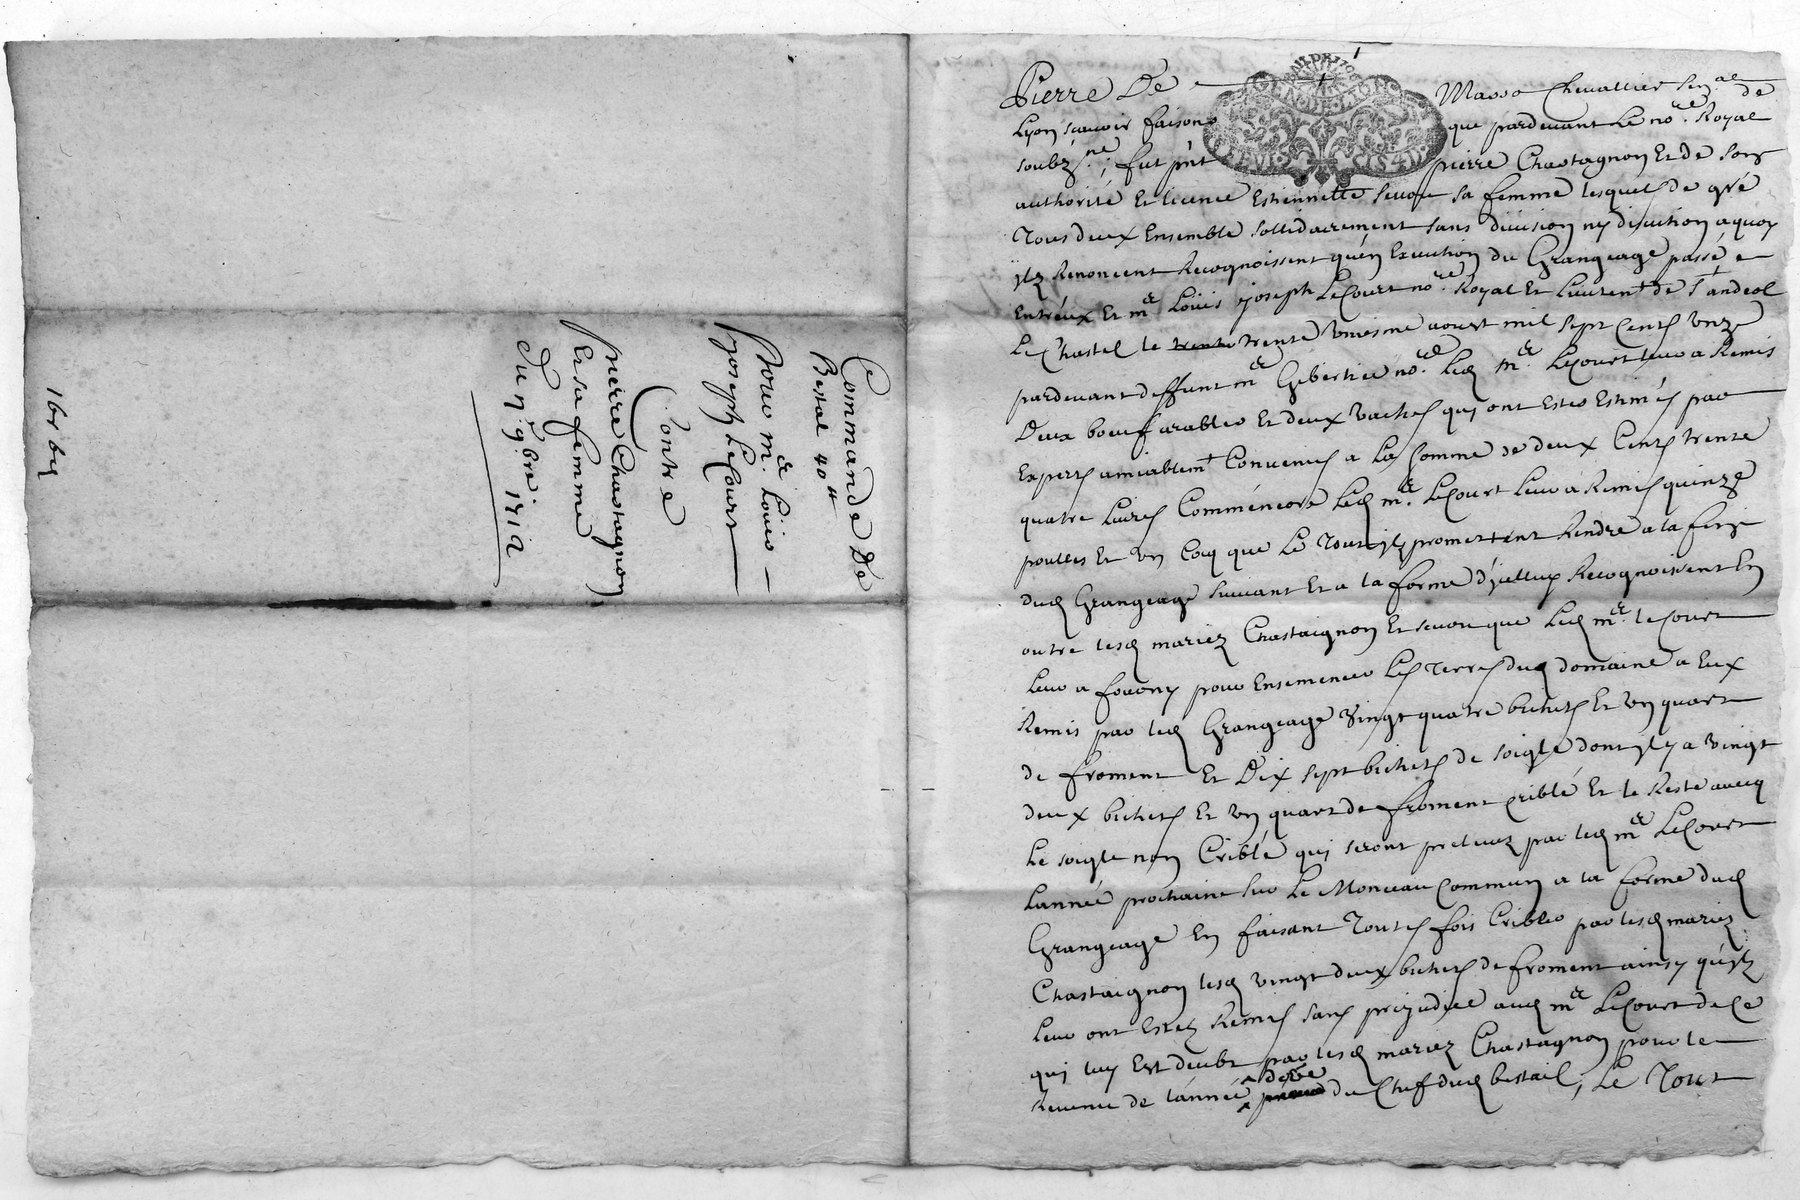 Commande De
Bestal 40ᵗᵗ
Pour mᵉ. Louis
Joseph LeCourt
Contre
pierre Chastagnon
Et sa femme
Du 7ᵉ 9.bre 1712
Pierre De Masso Chevallier Senᵃˡ de
Lyon scavoir faisons que pardevant Le noʳᵉ. Royal
soubzⁿᵉ, fut pñt pierre Chastagnon Et de son
authorité Et licence Estiennette sa femme lesquels de gré
Tous deux Ensemble sollidairement sans division ny discution a quoy
ylz Renoncent Recognoissent qu'en Execution du Grangeage passé
Entr'eux Et mᵉ Louis joseph LeCourt noʳᵉ. Royal Et Lieutenᵗ de Sᵗ andeol
Le Chastel le trente trente uniesme aoust mil sept Cents unze
pardevant deffunt mᵉ noʳᵉ. Led mᵉ. LeCourt leur a Remis
Deux boeufs arables Et deux vaches quy ont Estes Estimés par
Experts amiablemᵗ Convenus a La somme de deux Cents trente
quatre Livres Comm'encore Led mᵉ. LeCourt leur a Remis quinze
poulles Et un Coq que Le Tout ylz promettent Rendre a la fin
dud Grangeage suivant Et a la forme d'jcelluy Recognoissent En
outre lesd mariez Chastaignon Et que Led mᵉ. leCourt
Leur a fourny pour Ensemencer Les Terres dud domaine a Eux
Remis par led Grangeage vingt quatre bichets Et un quart
de froment Et Dix sept bichets de soigle dont yl y a vingt
deux bichets Et un quart de froment criblé Et le Reste avecq
Le soigle non Criblé qui seront prelevez par led mᵉ LeCourt
Lannée prochaine sur Le Monceau Commun a la forme dud
Grangeage En faisant Toutes fois Cribler par lesd mariez
Chastaignon lesd vingt deux bichets de froment ainsy qu'ylz
Leur ont Estez Remis sans prejudice aud mᵉ LeCourt de Ce
qui luy Est deubt par lesd mariez Chastagnon pour le
Revenu de l'année du Chef dud bestail, Le Tout